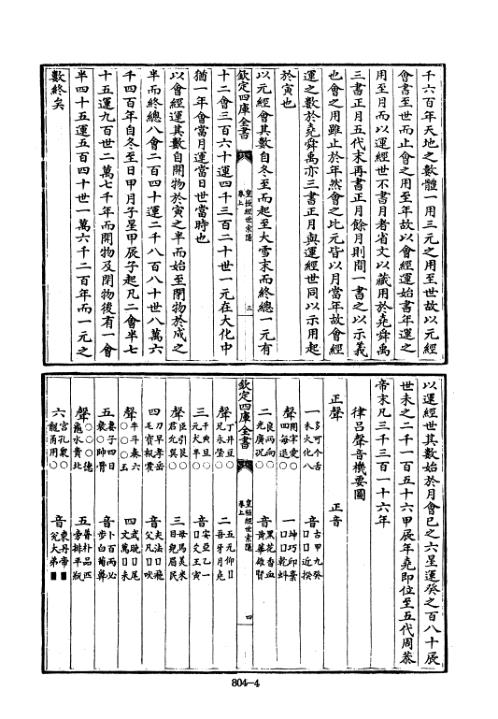 千六百年天地之數體一用三元之用至世故以元經
會書至世而止會之用至年故以會經運始書年運之
用至月而以運經世不書月者省文以藏用於堯舜禹
三書正月五代末再書正月餘月則間一書之以示義
也會之用雖止於年然會之比元皆以月當年故會經
運之數於堯舜禹亦三書正月與運經世同以示用起
於寅也
以元經會其數自冬至而起至大雪末而終總一元有
欽定四庫全書
皇極經世索隱
卷上
三
十二會三百六十運四千三百二十世一元在大化中
猶一年會當月運當日世當時也
以會經運其數自開物於寅之半而始至閉物於戌之
半而終總八會二百四十運二千八百八十世八萬六
千四百年自冬至日甲月子星甲辰子起凡二會半七
十五運九百世二萬七千年而開物及閉物後有一會
半四十五運五百四十世一萬六千二百年而一元之
數終矣
以運經世其數始於月會巳之六星運癸之百八十辰
世未之二千一百五十六甲辰年堯即位至五代周恭
帝末凡三千三百一十六年
律呂聲音機要圖
正聲 正音
一 多可个舌 音 古甲九癸
禾火化八 □□近揆
聲 開宰愛○ 一 坤巧邱棄
四每退○ □□乾虯
二 良兩向○ 音 黑花香血
光廣況○ 黃華雄賢
欽定四庫全書
皇極經世索隱
卷上
四
聲 丁井亘○ 二 五瓦仰□
兄永瑩○ 吾牙月堯
三 千典旦○ 音 安亞乙一
元犬半○ □爻王寅
聲 臣引艮○ 三 母馬美米
君允巽○ 目皃眉民
四 刀早孝岳 音 夫法□飛
毛寶報霍 父凡□吠
聲 牛斗奏六 四 武晚□尾
○○○玉 文萬□未
五 妻子四日 音 卜百丙必
衰○帥骨 步白荀鼻
聲 ○○○德 五 普朴品匹
龜水貴北 旁排平瓶
六 宮孔衆○ 音 東丹帝■
龍甬用○ 兊大弟■
804-4